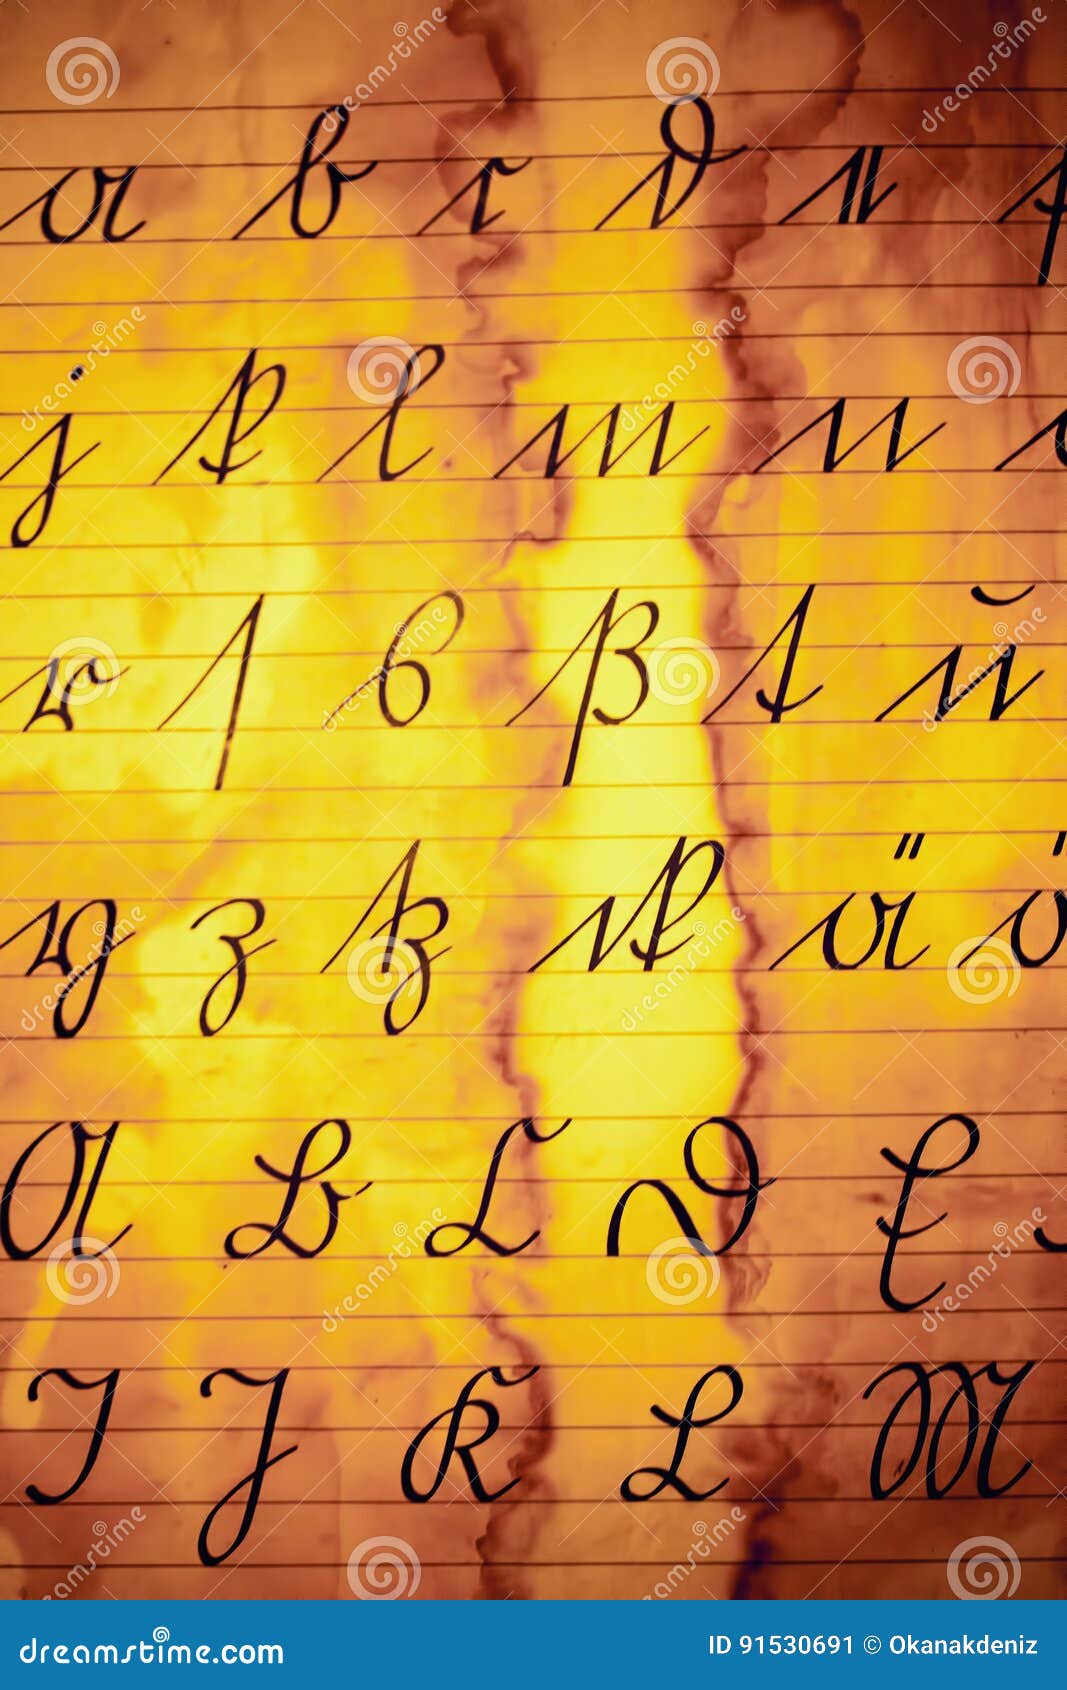 a b c d e f
j k l m n o
r ſ s ß t u
y z tz ck ä ö
A B C D E
I J K L M
dreamstime.com ID 91530691 © Okanakdeniz